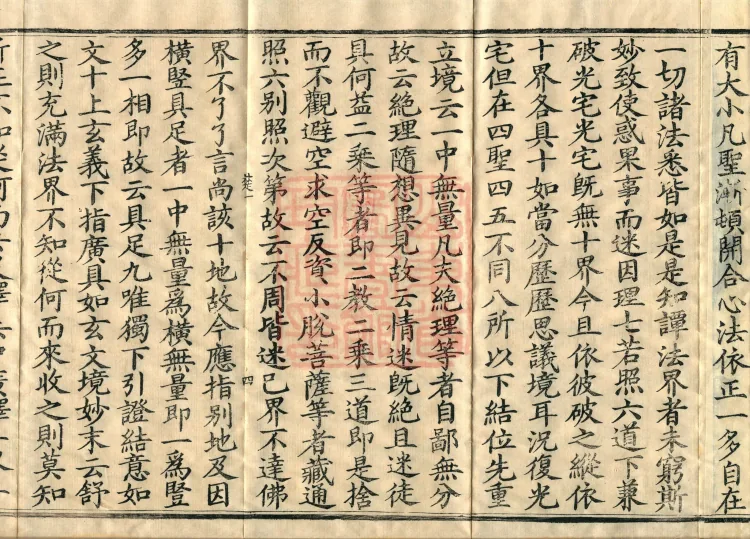 有大小凡聖漸頓開合心法依正一多自在
一切諸法悉皆如是是知譚法界者未窮斯
妙致使惑果事而迷因理士若照六道下兼
破光宅光宅既無十界今且依彼破之縱依
十界各具十如當分歷歷思議境耳況復光
宅但在四聖四五不同八所以下結位先重
立境云一中無量凡夫絕理等者自鄙無分
故云絕理隨想異見故云情迷既絕且迷徒
具何益二乘等者即二教二乘三道即是捨
而不觀避空求空反資小脫菩薩等者藏通
照六別照次第故云不周皆迷己界不達佛
界不了了言尚該十地故今應指別地及因
橫豎具足者一中無量為橫無量即一為豎
多一相即故云具足九唯獨下引證結意如
文十上玄義下指廣具如玄文境妙末云舒
之則充滿法界不知從何而來收之則莫知
四